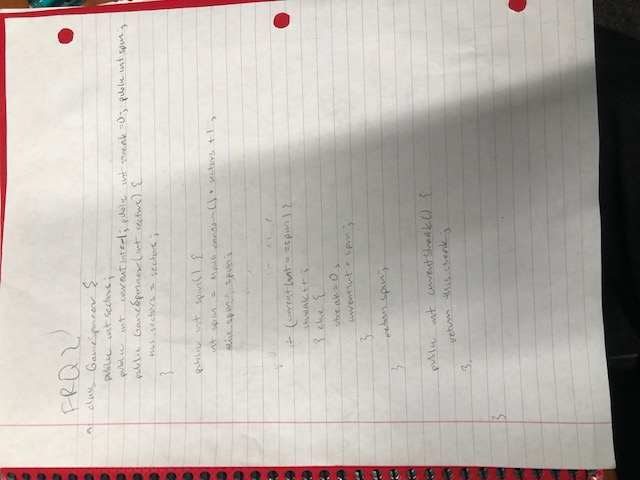 FRQ 2
a class GameSpinner {
public int sectors;
public int currentInt=-1; public int streak=0; public int spin;
public GameSpinner(int sectors) {
this.sectors = sectors;
}
public int spin() {
int spin = Math.random() * sectors + 1;
this.spin = spin;
if (currentInt == spin) {
streak++;
} else {
streak=0;
currentInt = spin;
}
return spin;
}
public int currentStreak() {
return this.streak;
}
}